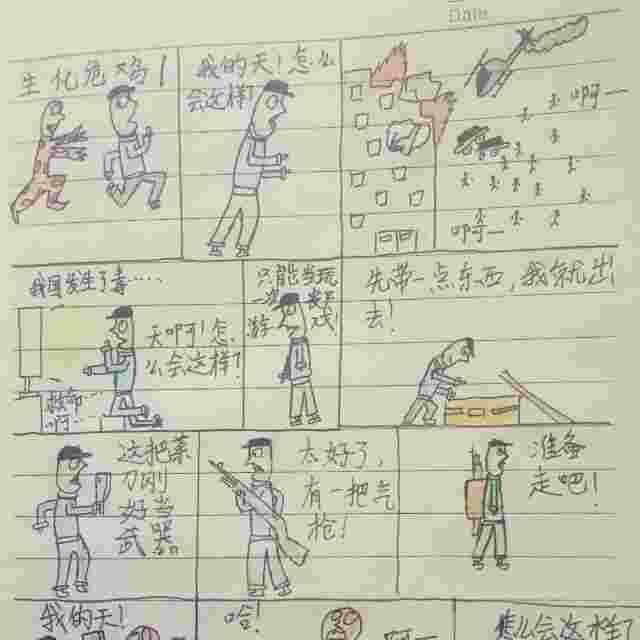 Date
生化危鸡！
我的天！怎么
会这样！
啊一
啊一
我国发生了毒····
天啊！怎
么会这样？
救命···
啊···
只能当玩
一次
游戏！
先带一点东西，我就出
去！
这把菜
刀刚
好当
武器。
太好了，
有一把气
枪！
准备
走吧！
我的天！
哈！
啊一
怎么会这样？